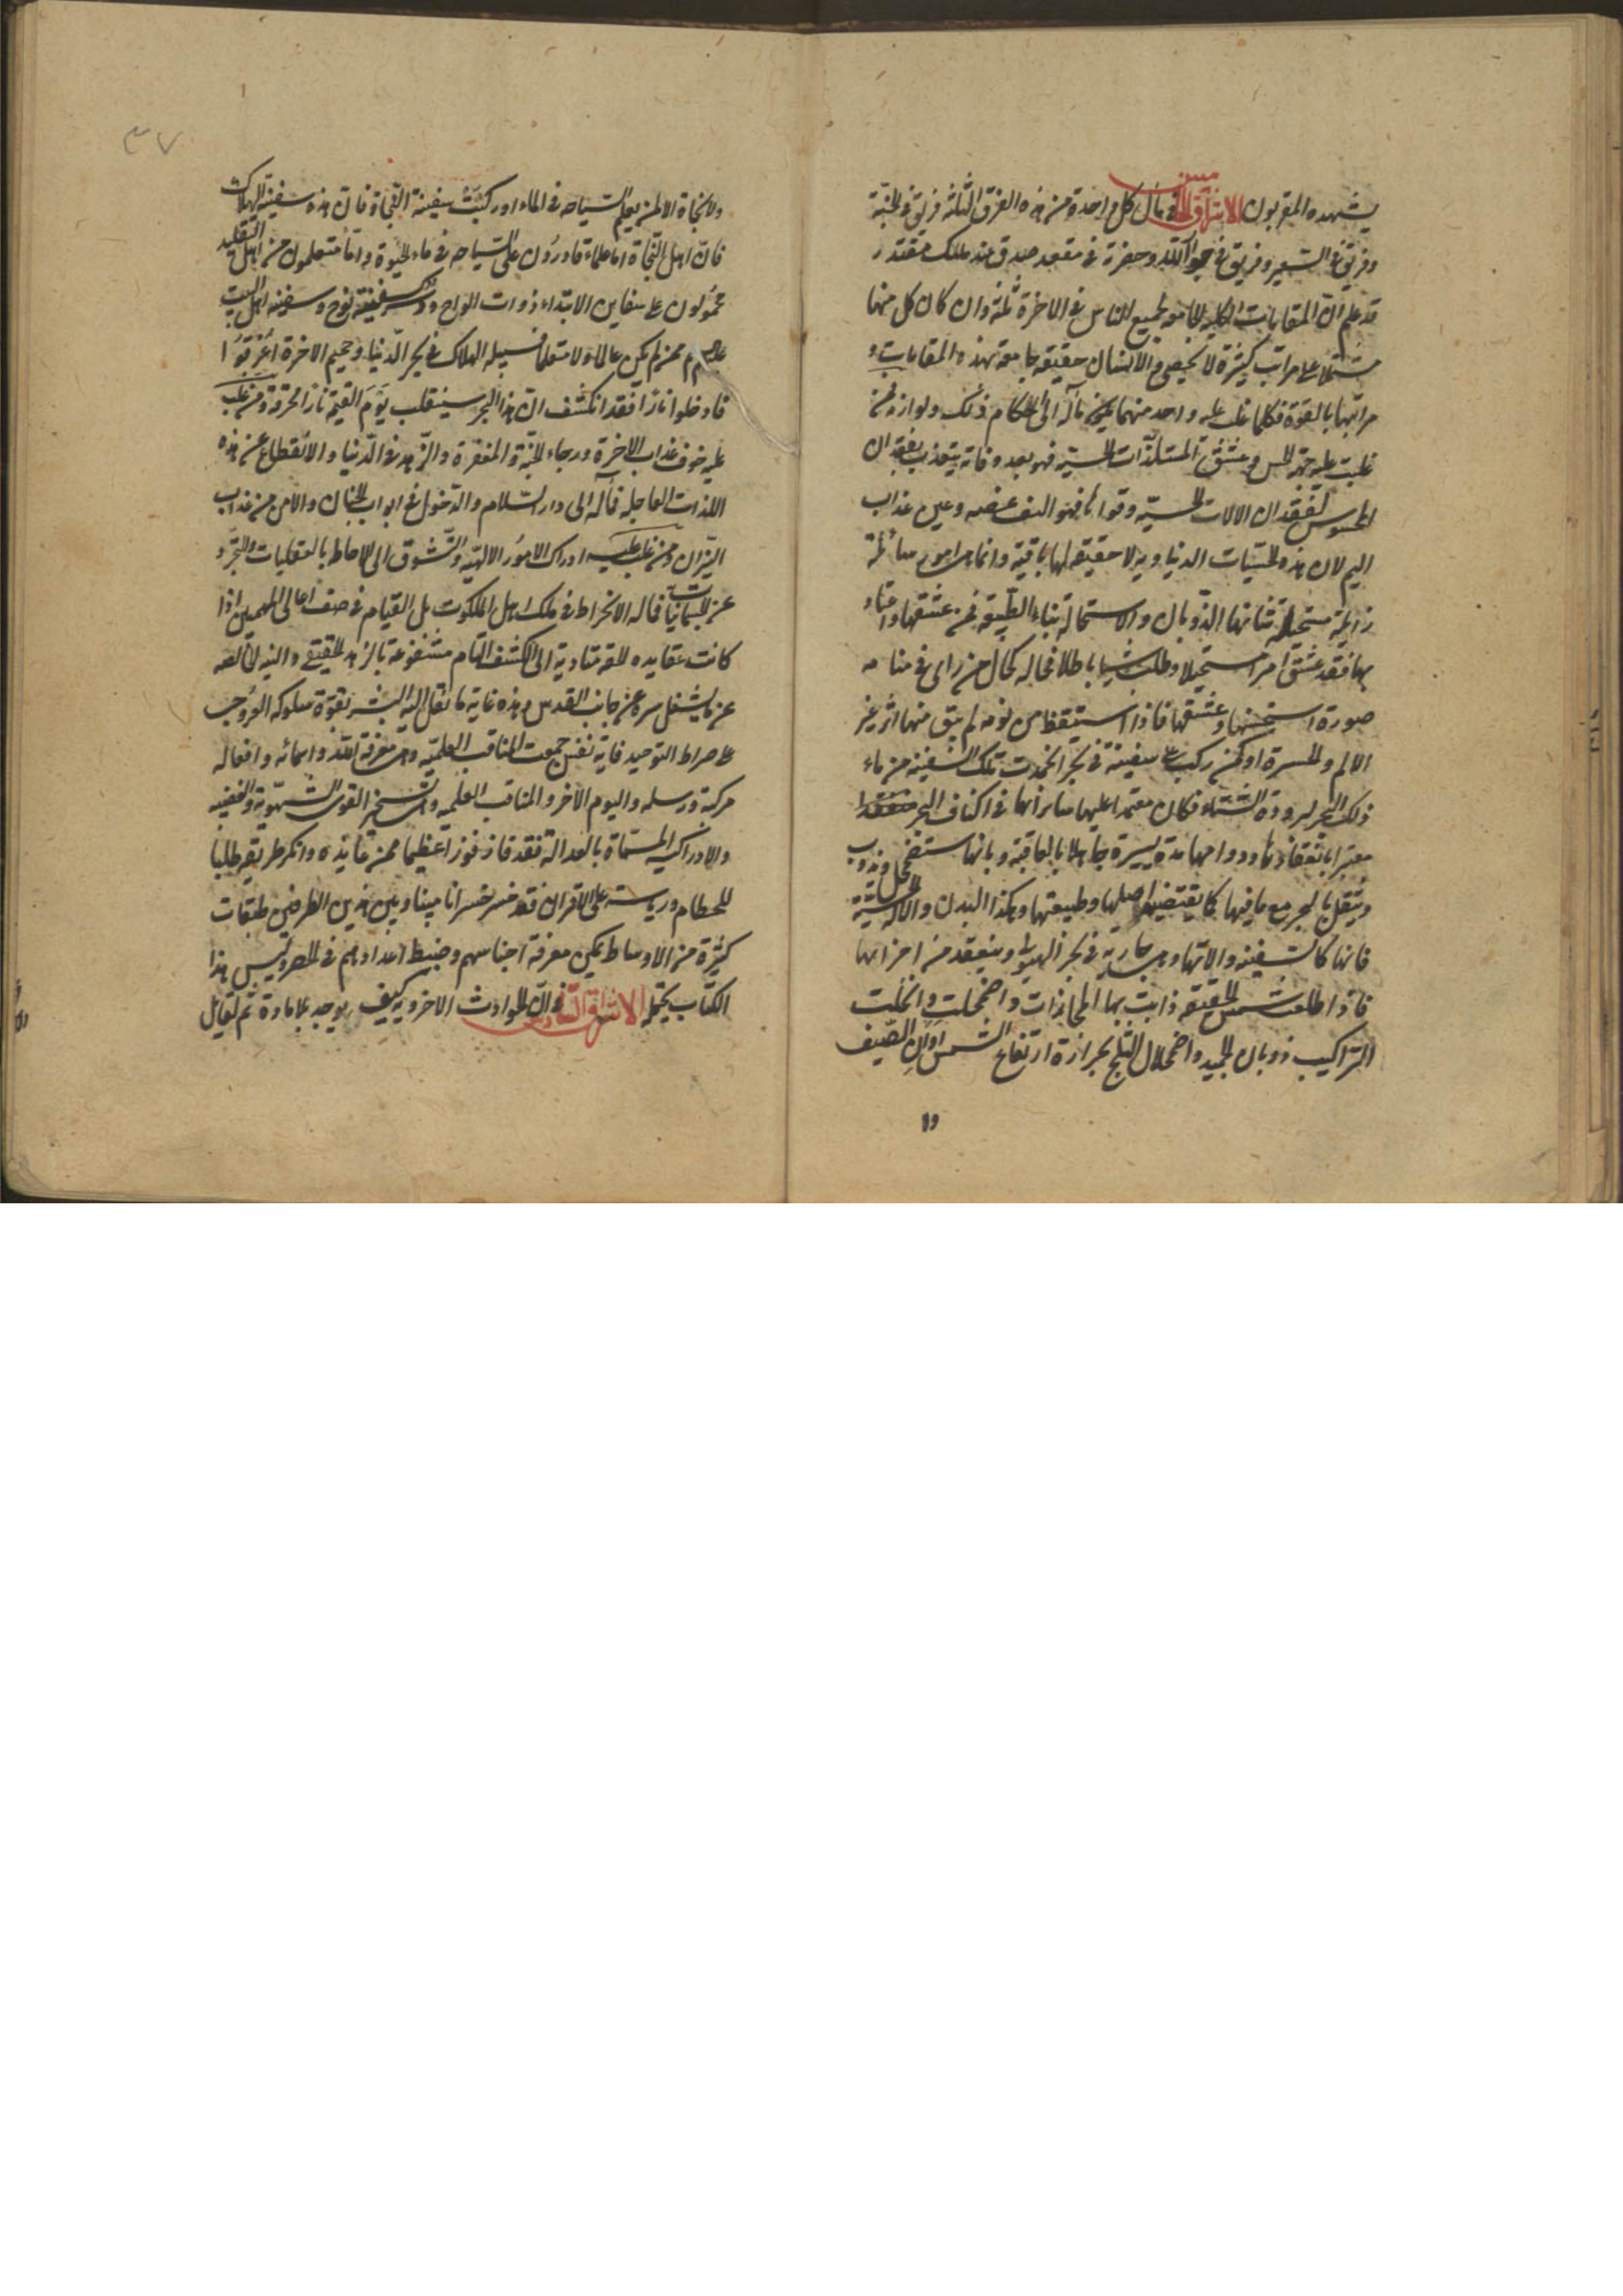 يشهده المقربون الاشراق الخامس في مآل كل واحدة من هذه الفرق الثلثة فريق في الجنّة
وفريق في السعير وفريق في جوار الله وحضرة في مقعد صدق عند مليك مقتدر
قد علم انّ المقامات الكلية الجامعة لجميع الناس في الاخرة ثلثة وان كان كل منها
مشتملا على مراتب كثيرة لا تحصى والانسان حقيقة جامعة لهذه المقامات و
مراتبها بالقوة فكلما غلب عليه واحد منها يكون مآله الى احكام ذلك ولوازمه فمن
غلبت عليه الحس وعشق المستلذّات الحسيّة فهو بعد وفاته يتعذب بفقدان
المحسوس لفقدان الالات الحسيّة وقواته فهو اليف غصه وعين عذاب
اليم لان هذه الحسّيات الدنياوية لا حقيقة لها باقية وانما هى امور سائلة
زائلة مستحيلة شانها الذّوبان والاستحالة بناء الطبيعة فمن عشقها واعتناء
بها فقد عشق امرا مستحيلا وطلب شيئا باطلا فحاله كحال من راى في منامه
صورة استحسنها وعشقها فاذا استيقظ من نومه لم يبق منها اثر غير
الالم والحسرة او كمن ركب على سفينة في بحر انجمدت تلك السفينة من ماء
ذلك البحر لبرودة الشتاء فكان معتمدا عليها سائرا بها في اكناف البحر
مغترا بانعقادها ودوامها مدة يسيرة جاهلا بالعاقبة وبانها ستضمحل وتذوب
وينتقل بالبحر مع ما فيها كما يقتضيه اصلها وطبيعتها وهكذا البدن والالات الحسية
فانها كالسفينة والاتها وهى جارية في بحر الهيولى وينعقد من اجزائها
فاذا طلعت شمس الحقيقة ذابت بها المجازات واضمحلت وانحلت
التراكيب ذوبان الجميد واضمحلال الثلج بحرارة ارتفاع الشمس اوان الصّيف
وا
٣٧
ولا نجاة الا لمن يعلم السّباحه في الماء او ركبت سفينة النجاة فان هذه سفينة الهلاك
فان اهل النّجاة اما علماء قادرون على السّباحه في ماء الحيوة واما متعلمون من اهل التقليد
محمولون على سفاين الابتداء ذوات الواح ودسر كسفينة نوح وسفينه اهل البيت
عليهم السلام فمن لم يكن عالما ولا متعلما فسبيله الهلاك في بحر الدّنيا وجحيم الاخرة اُغرقوا
فادخلوا نارًا فقد انكشف انّ هذا البحر سينقلب يوم القيمة نارا محرقة ومن غلب
عليه خوف عذاب الاخرة ورجاء الجنّة والمغفرة والزّهد في الدّنيا والانقطاع عن هذه
اللذات العاجلة فمآله الى دار السّلام والدّخول في ابواب الجنان والامن من عذاب
النيّران ومن غلب عليه ادراك الامور الالهيّة والتّشوق الى الاحاطه بالعقليات والتجرد
عن الجسمانيّات فمآله الانخراط في ملك اهل الملكوت بل القيام في صف اعالى المهيمين اذا
كانت عقايده الحقه متادية الى الكشف التام مشفوعة بالزهد الحقيقى والنية الخالصه
عن ما يشغل سره عن جانب القدس وهذه غاية ما ينتقل اليه البشر بقوة سلوكه العروجى
على صراط التوحيد فاية نفس جمعت المناقب العلميّه وهى معرفة الله واسمائه وافعاله
من كتبه ورسله واليوم الآخر والمناقب العمليه وهى تسخير القوى الشهويّة والغضبيه
والادراكيه المسمّاة بالعدالة فقد فاز فوزا عظيما ومن عانده وانكر طريقه طلبا
للحطام ورياسة على الاقران فقد خسر خسرانا مبينا وبين هذين الطرفين طبقات
كثيرة من الاوساط يمكن معرفة اجناسهم وضبط اعدادهم في الحصر وليس هذا
الكتاب يحتمله الاشراق السّادس في ان الحوادث الاخرويه كيف يوجد بلا مادة ثم لقائل